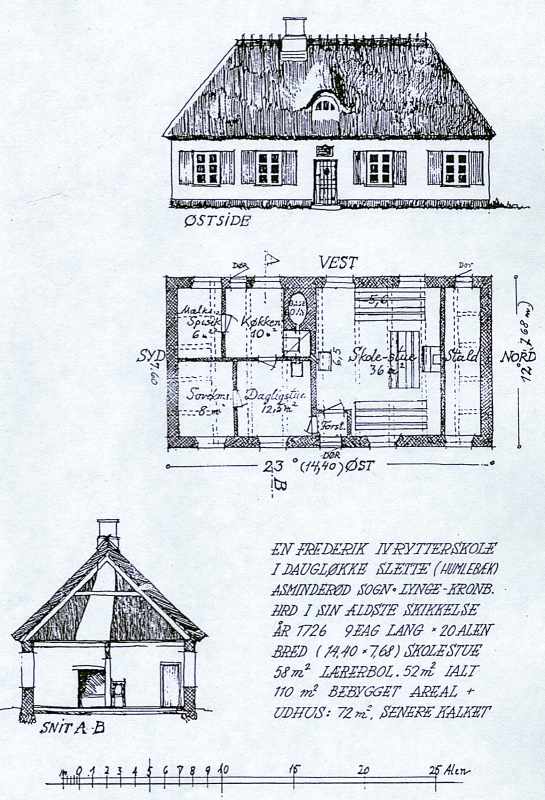 ØSTSIDE
VEST
DØR
DØR
A
Mælk-
Spisek
6 m²
Køkken
10 m²
5,6
Skole-stue
36 m²
6,5
Stald
SYD
NORD
7,60
12° (7,68 m)
Sovekms.
8 m²
Dagligstue.
12,5 m²
Forst.
DØR
23 ° (14,40) ØST
B
EN FREDERIK IV RYTTERSKOLE
I DAUGLØKKE SLETTE (HUMLEBÆK)
ASMINDERØD SOGN • LYNGE-KRONB.
HRD I SIN ÆLDSTE SKIKKELSE
ÅR 1726 9 FAG LANG × 20 ALEN
BRED (14,40 × 7,68) SKOLESTUE
58 m² LÆRERBOL. 52 m² IALT
110 m² BEBYGGET AREAL +
UDHUS: 72 m², SENERE KALKET
SNIT A-B
m 0 1 2 3 4 5 6 7 8 9 10 15 20 25 Alen